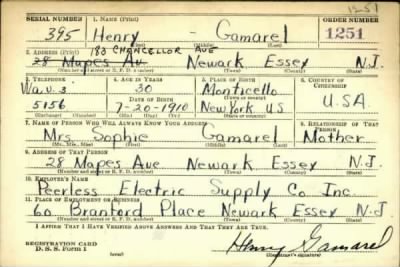 1251
SERIAL NUMBER 1. NAME (Print) ORDER NUMBER
395 Henry - Gamarel 1251
(First) (Middle) (Last)
183 CHANCELLOR AVE
2. ADDRESS (Print)
28 Mapes Av. Newark Essex N.J.
(Number and street or R. F. D. number) (Town) (County) (State)
3. TELEPHONE 4. AGE IN YEARS 5. PLACE OF BIRTH 6. COUNTRY OF CITIZENSHIP
Wav. 3 30 Monticello
DATE OF BIRTH (Town or county)
5156 7-20-1910 New York US U.S.A.
(Mo.) (Day) (Yr.) (State or country)
7. NAME OF PERSON WHO WILL ALWAYS KNOW YOUR ADDRESS 8. RELATIONSHIP OF THAT PERSON
Mrs. Sophie Gamarel Mother
(Mr., Mrs., Miss) (First) (Middle) (Last)
9. ADDRESS OF THAT PERSON
28 Mapes Ave Newark Essex N.J.
(Number and street or R. F. D. number) (Town) (County) (State)
10. EMPLOYER'S NAME
Peerless Electric Supply Co Inc.
11. PLACE OF EMPLOYMENT OR BUSINESS
60 Branford Place Newark Essex N.J
(Number and street or R. F. D. number) (Town) (County) (State)
I AFFIRM THAT I HAVE VERIFIED ABOVE ANSWERS AND THAT THEY ARE TRUE.
REGISTRATION CARD
D. S. S. Form 1
Henry Gamarel
(Registrant's signature)